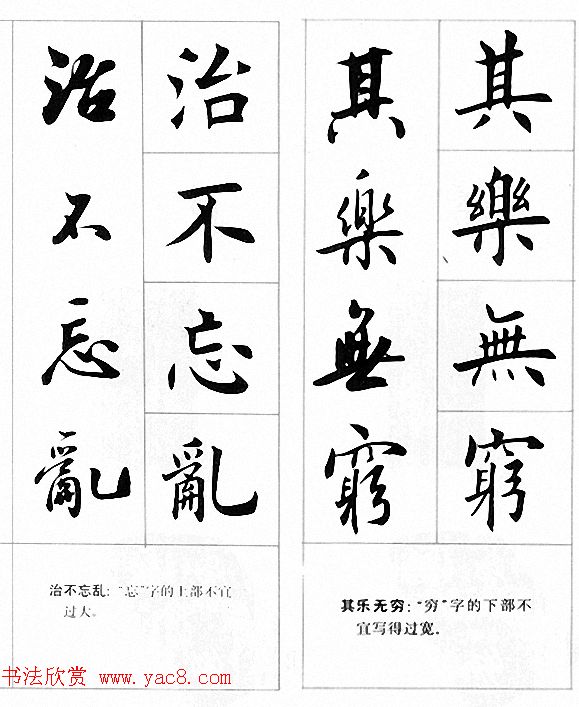 其樂無窮
其樂無窮
其乐无穷：“穷”字的下部不
宜写得过宽。
治不忘亂
治不忘亂
治不忘乱：“忘”字的上部不宜
过大。
书法欣赏 www.yac8.com